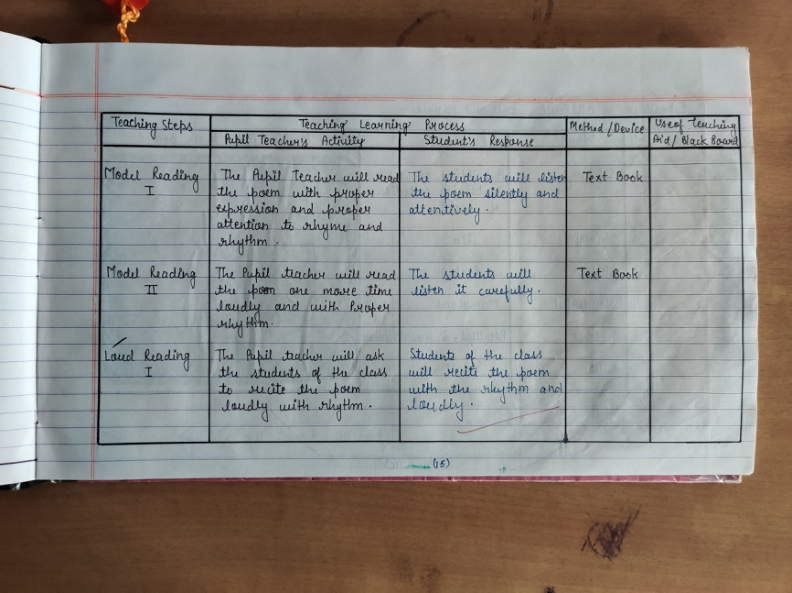 Teaching Steps
Teaching Learning Process
Method / Device
Use of Teaching
Aid / Black Board
Pupil Teacher's Activity
Student's Response
Model Reading
I
The Pupil Teacher will read
the poem with proper
expression and proper
attention to rhyme and
rhythm.
The students will listen
the poem silently and
attentively.
Text Book
Model Reading
II
The Pupil teacher will read
the poem one more time
loudly and with Proper
rhythm.
The students will
listen it carefully.
Text Book
Loud Reading
I
The Pupil teacher will ask
the students of the class
to recite the poem
loudly with rhythm.
Students of the class
will recite the poem
with the rhythm and
loudly.
(15)